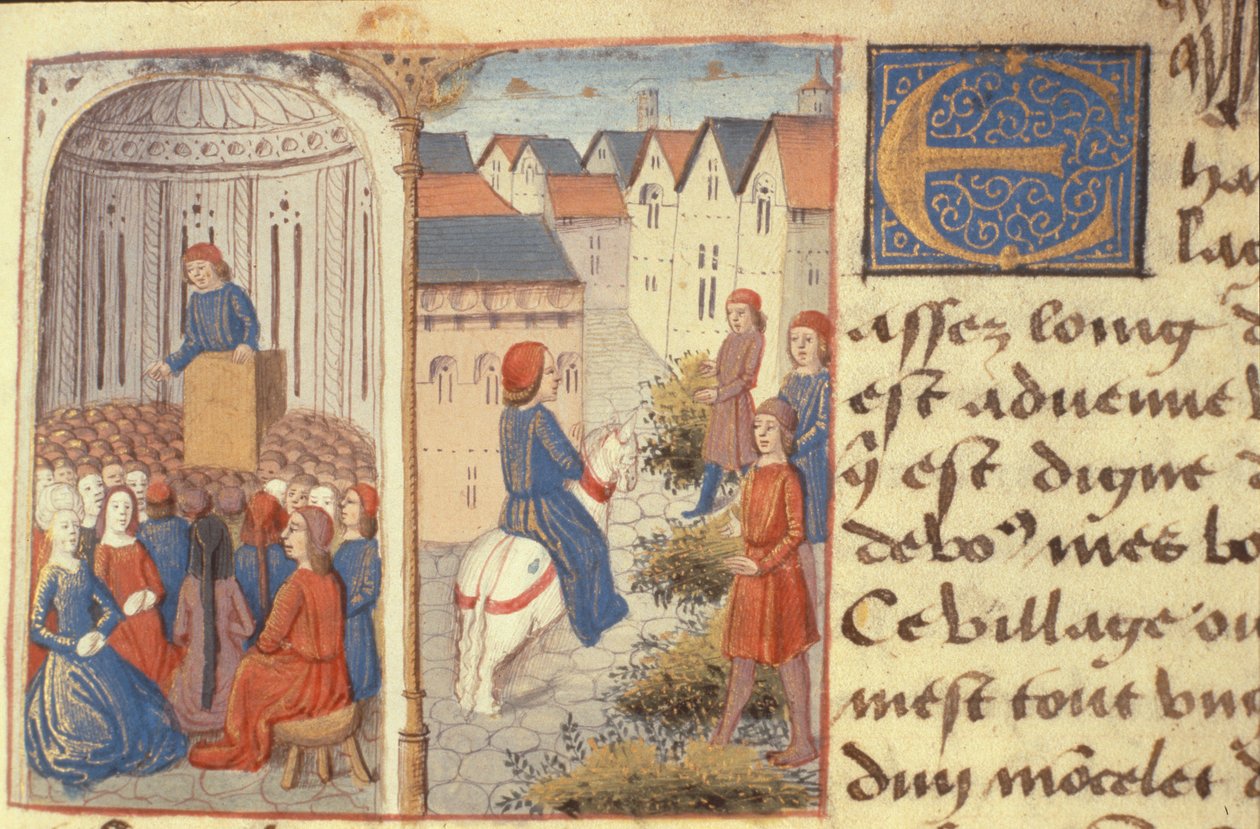 E
ha
assez loing d
est aduenue
q̃ est digne d
de voꝰ mes bo
Ce village ou
nest tout vn
dun mõcelet d